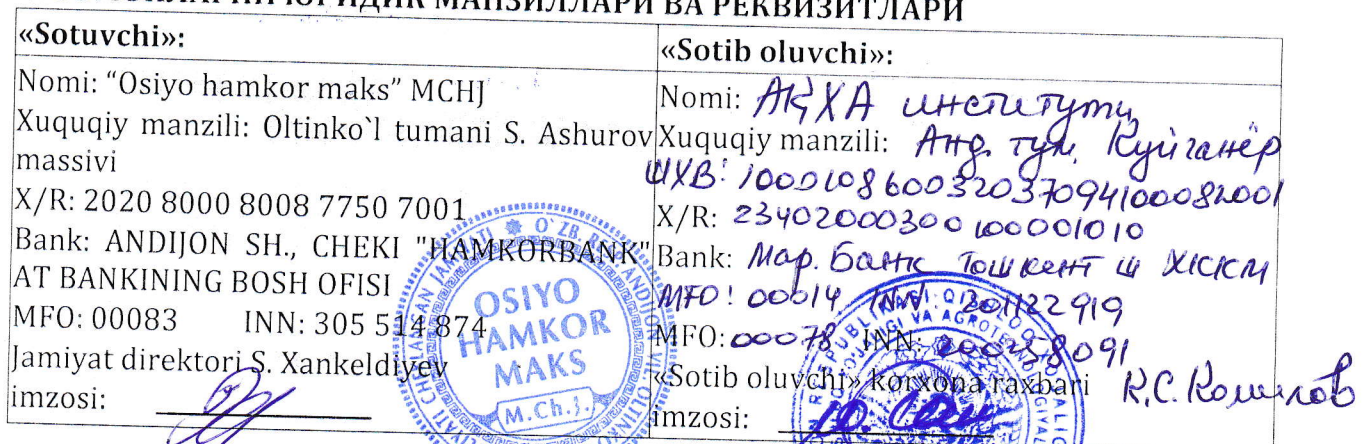 ЮРИДИК МАНЗИЛЛАРИ ВА РЕКВИЗИТЛАРИ
«Sotuvchi»:
Nomi: “Osiyo hamkor maks” MCHJ
Xuquqiy manzili: Oltinko`l tumani S. Ashurov
massivi
X/R: 2020 8000 8008 7750 7001
Bank: ANDIJON SH., CHEKI "HAMKORBANK"
AT BANKINING BOSH OFISI
MFO: 00083 INN: 305 514 874
Jamiyat direktori S. Xankeldiyev
imzosi:
OSIYO
HAMKOR
MAKS
M.Ch.J.
«Sotib oluvchi»:
Nomi: АҚХА институти
Xuquqiy manzili: Анд. тум. Куйганёр
ШХВ: 100010860032037094100082001
X/R: 23402000300100001010
Bank: Мар. Банк Тошкент ш ХККМ
MFO: 00014 INN: 201122919
MFO: 00078 INN: 200258091
«Sotib oluvchi» korxona raxbari К.С. Комилов
imzosi: